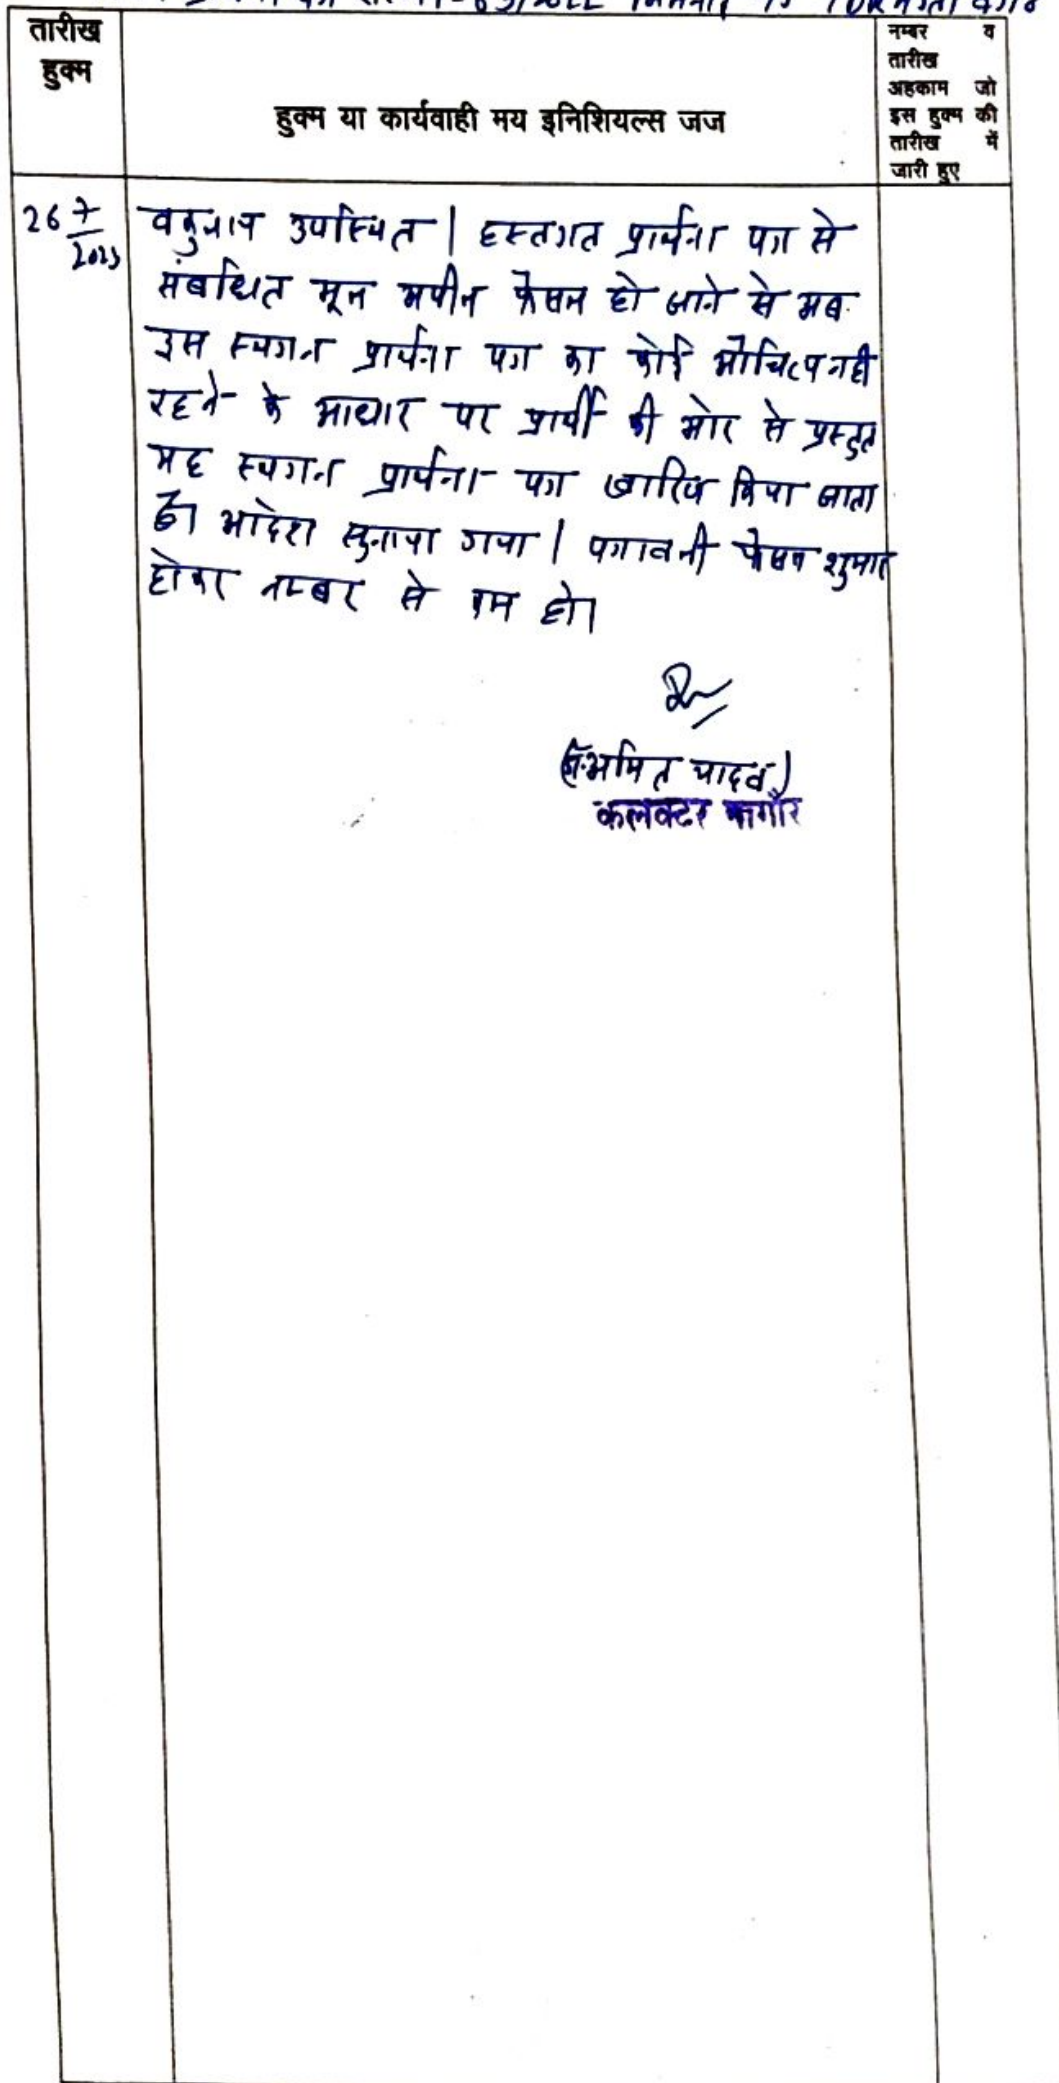 तारीख
हुक्म
हुक्म या कार्यवाही मय इनिशियल्स जज
नम्बर व
तारीख
अहकाम जो
इस हुक्म की
तारीख में
जारी हुए
26 7/2023
वकुलाय उपस्थित | हस्तगत प्रार्थना पत्र से
संबंधित मूल अपील फैसल हो जाने से अब
इस स्थगन प्रार्थना पत्र का कोई औचित्य नही
रहने के आधार पर प्रार्थी की ओर से प्रस्तुत
यह स्थगन प्रार्थना पत्र खारिज किया जाता
है। आदेश सुनाया गया | पत्रावली फैसल शुमार
होकर नम्बर से कम हो।
अमित यादव)
कलक्टर नागौर